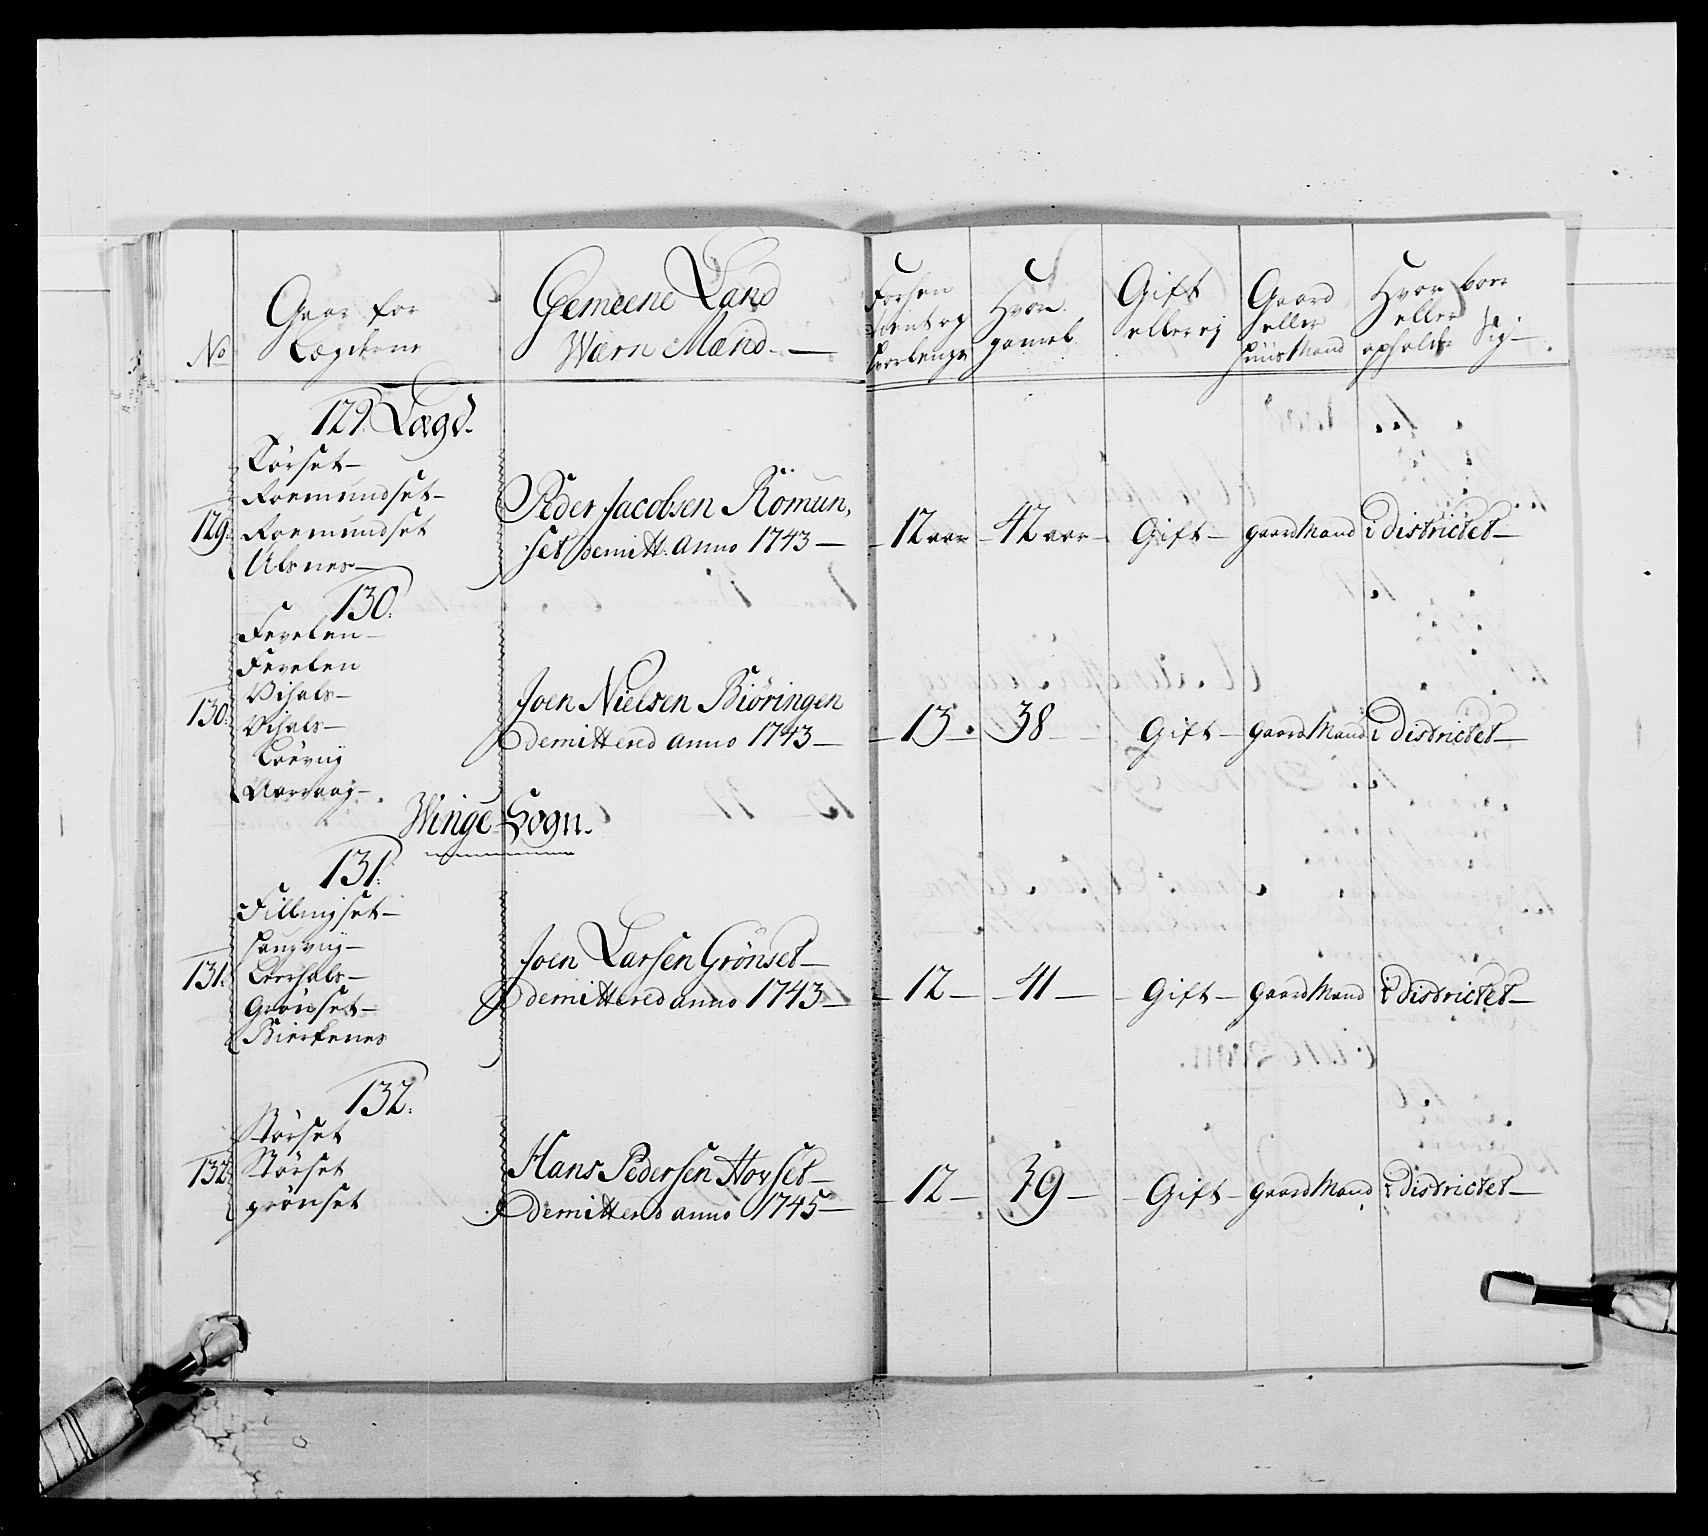 No
Gaar for
Lægderne
Gemeene Land
Wærn Mænd.
Forhen
tient og
hvorlenge
Hvor
gamel
Gift
eller ej
Gaard
eller
huusMand
Hvor boer
eller
opholder Sig
129. Lægd.
Torset
Roemundset
129. Roemundset
Alsnes
Peder Jacobsen Romun,
set demitt. anno 1743
12 aar 42 aar Gift gaardMand i districtet
130.
Fevelen
Fevelen
Vihals
130. Vihals
Aarvaag
Joen Nielsen Biöringen
demittered anno 1743
13. 38 Gift gaardMand i districtet
Winge Sogn.
131.
Fillingset
Haugviig
131. Leerhals
Grönset
Bierkenes
Joen Larsen Grönset
demittered anno 1743
12 41 Gift gaardMand i districtet
132.
Störset
132. Störset
grönset
Hans Pedersen Hovset
demittered anno 1745
12 39 Gift gaardMand i districtet